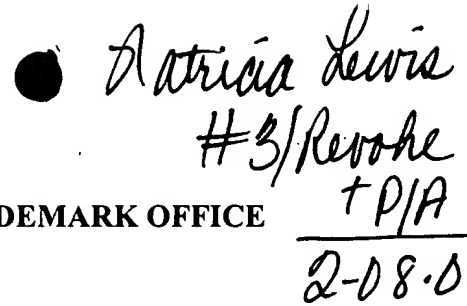 Patricia Lewis
#3/Revoke
+ P/A
DEMARK OFFICE
2-08.0